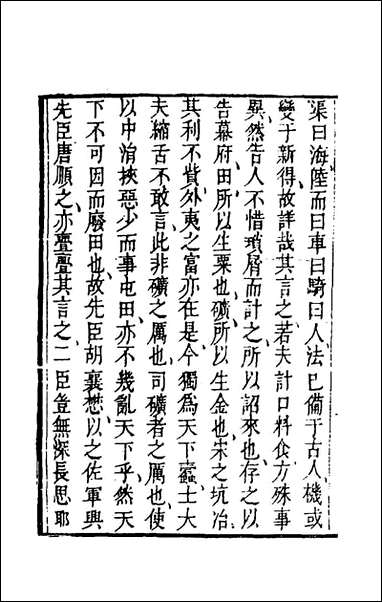 渠曰海陸而曰車曰騎曰人法已備于古人機或
變于新得故詳哉其言之若夫計口料食方殊事
異然告人不惜瑣屑而計之所以詔來也存之以
告幕府田所以生粟也礦所以生金也宋之坑冶
其利不貲外夷之富亦在是今獨為天下蠹士大
夫縮舌不敢言此非礦之厲也司礦者之厲也使
以中涓挾惡少而事屯田亦不幾亂天下乎然天
下不可因而廢田也故先臣胡襄懋以之佐軍興
先臣唐順之亦亹亹其言之二臣豈無深長思耶